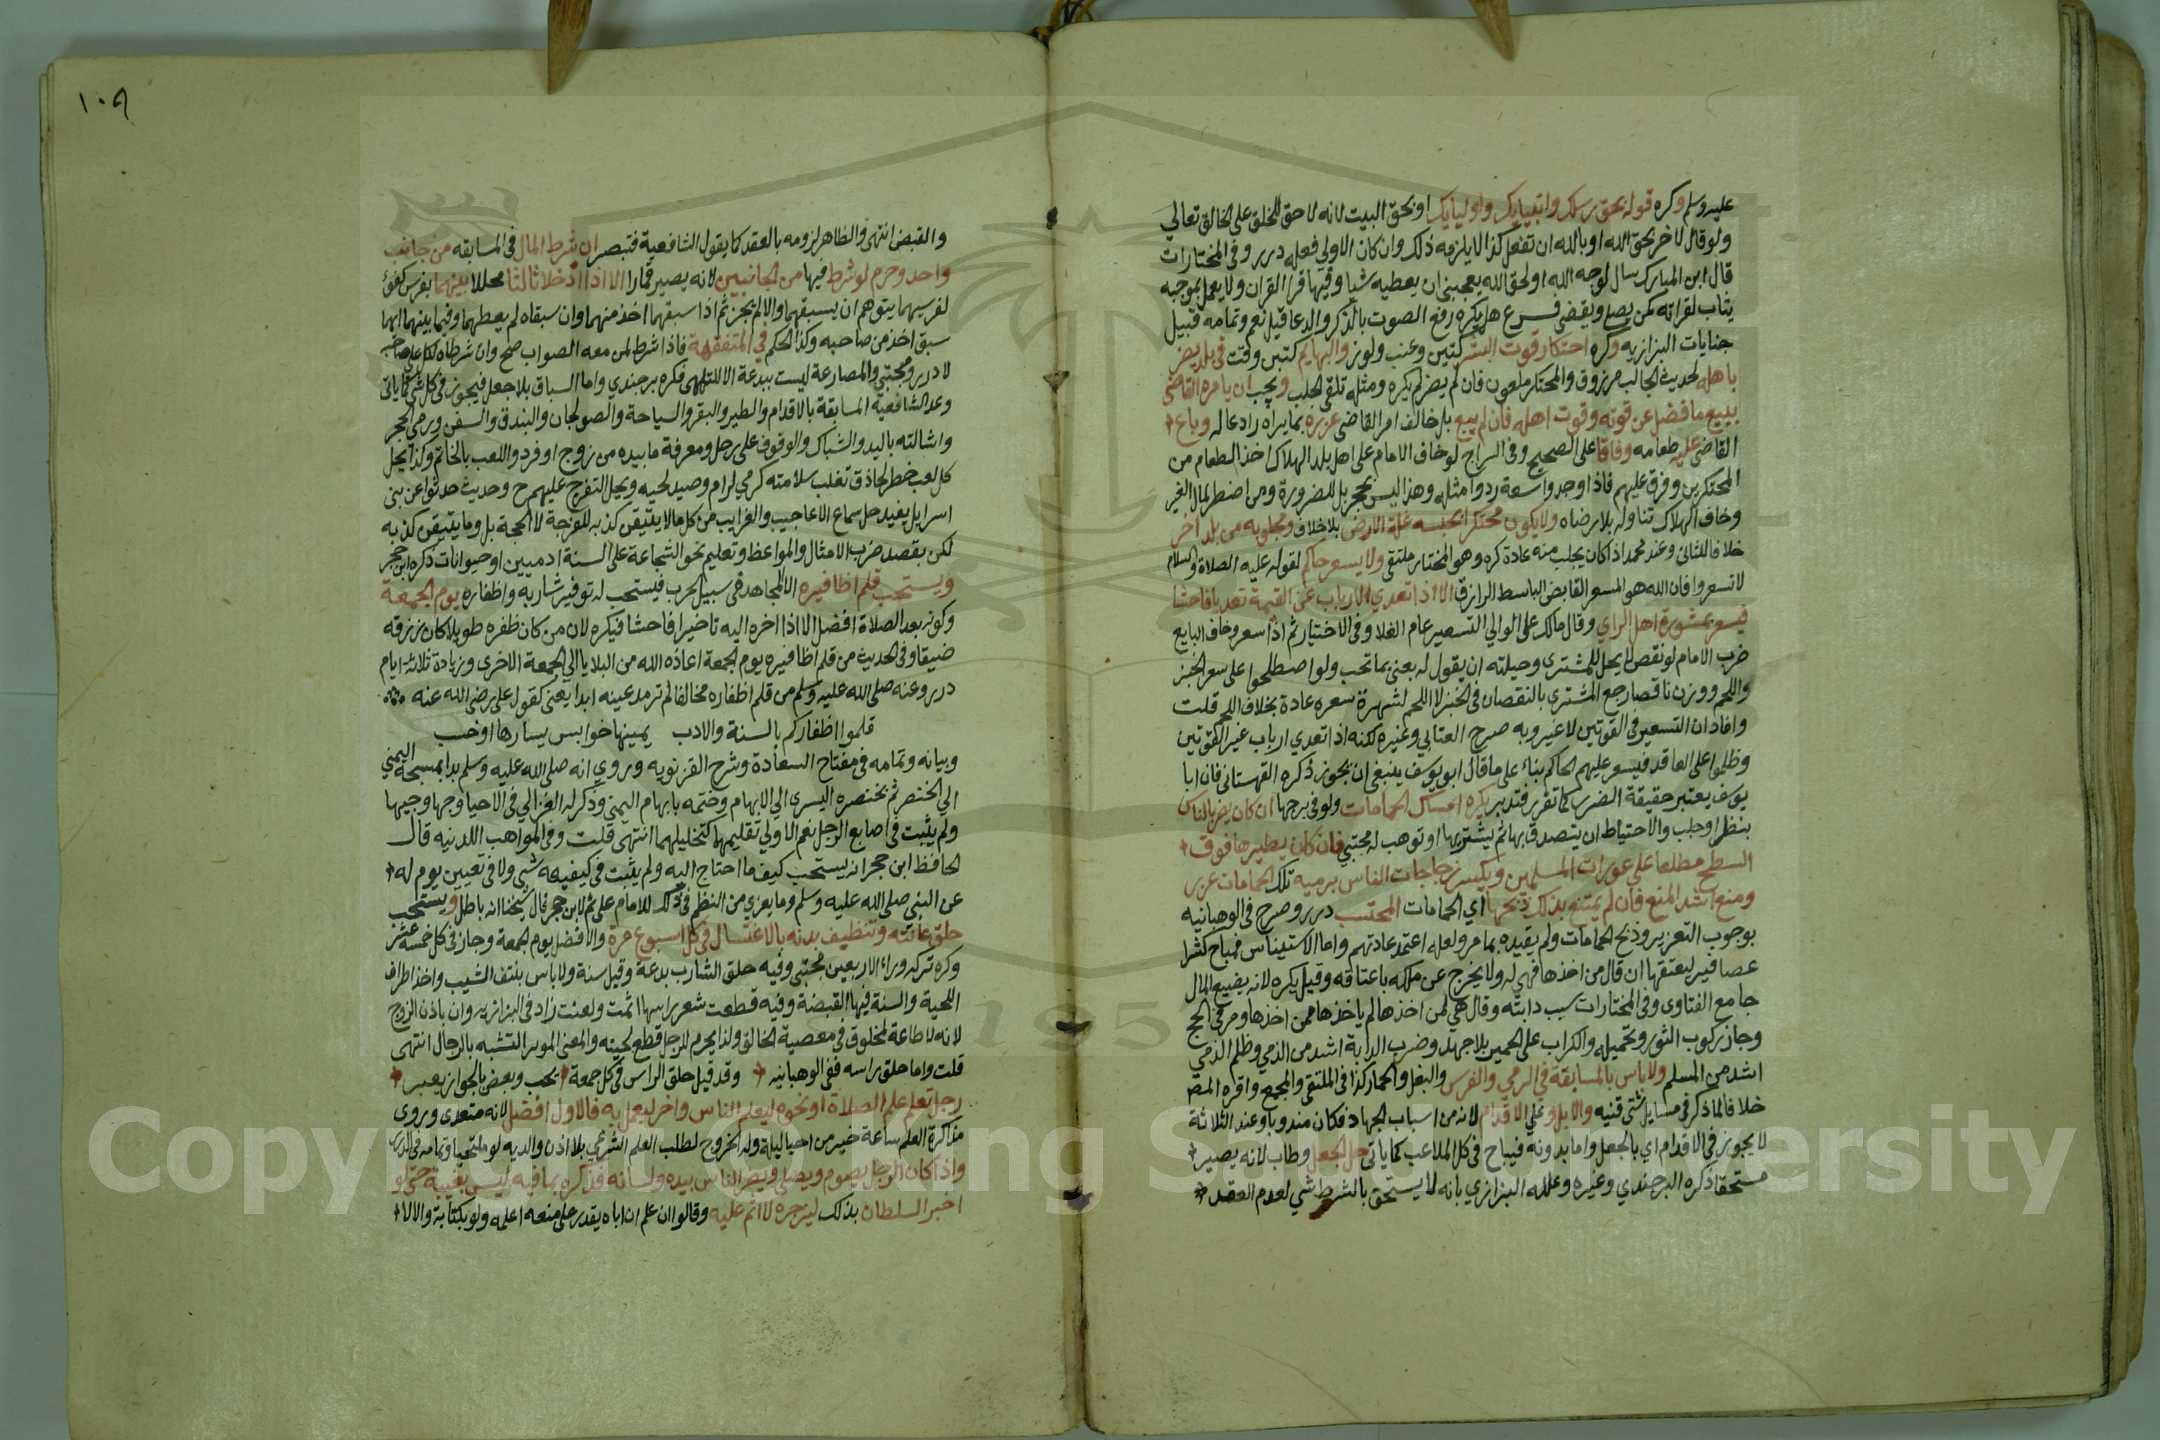 عليه وسلم وكره قوله بحق رسلك وانبيايك واوليايك او بحق البيت لانه لا حق للخلق على الخالق تعالي
ولو قال لاخر بحق الله او بالله ان تفعل كذا لا يلزمه ذلك وان كان الاولي فعله درر وفي المختارات
قال ابن المبارك سال لوجه الله او لحق الله يعجبني ان يعطيه شيا وفيها قرا القران ولا يعمل بموجبه
يثاب لقراته كمن يصلي ويقضي فرع هل يكره رفع الصوت بالذكر والدعا قيل نعم وتمامه قبيل
جنايات البزازيه وكره احتكار قوت البشر كتين وعنب ولوز والبهايم كتبن وقت في بلد يضر
باهله لحديث الجالب مرزوق والمحتكر ملعون فان لم يضر لم يكره ومثله تلقي الجلب ويجب ان يامره القاضي
ببيع ما فضل عن قوته وقوت اهله فان لم يبع بل خالف امر القاضي عزره بما يراه رادعا له وباع
القاضي عليه طعامه وفاقا على الصحيح وفي السراج لو خاف الامام على اهل بلد الهلاك اخذ الطعام من
المحتكرين وفرق عليهم فاذا وجدوا سعة ردوا مثله وهذا ليس بحجر بل للضرورة ومن اضطر لمال الغير
وخاف الهلاك تناوله بلا رضاه ولا يكون محتكرا بحبسه غلة الارض بلا خلاف ومجلوبه من بلد اخر
خلافا للثاني وعند محمد اذا كان يجلب منه عادة كره وهو المختار ملتقي ولا يسعر حاكم لقوله عليه الصلاة والسلام
لا تسعروا فان الله هو المسعر القابض الباسط الرازق الا اذا تعدي الارباب عن القيمة تعديا فاحشا
فيسعر بمشورة اهل الراي وقال مالك على الوالي التسعير عام الغلا وفي الاختيار ثم اذا سعر وخاف البايع
ضرب الامام لو نقص لا يحل للمشتري وحيلته ان يقول له بعني بما تحب ولو اصطلحوا على سعر الخبز
واللحم ووزن ناقصا رجع المشتري بالنقصان في الخبز لا اللحم لشهرة سعره عادة بخلاف اللحم قلت
وافاد ان التسعير في القوتين لا غير وبه صرح العتابي وغيره لكنه اذا تعدي ارباب غير القوتين
وظلموا على العاقد فيسعر عليهم الحاكم بناء على ما قال ابو يوسف ينبغي ان يجوز ذكره القهستاني فان ابا
يوسف يعتبر حقيقة الضرر كما تقرر فتدبر يكره امساك الحمامات ولو في برجها ان كان يضر بالناس
بنظر او جلب والاحتياط ان يتصدق بها ثم يشتريها او توهب له مجتبي فان كان يطيرها فوق
السطح مطلعا على عورات المسلمين ويكسر زجاجات الناس برميه تلك الحمامات عزر
ومنع اشد المنع فان لم يمتنع بذلك ذبحها اي الحمامات المحتسب درر وصرح في الوهبانيه
بوجوب التعزير وذبح الحمامات ولم يقيده بما مر ولعله اعتمد عادتهم واما الاستيناس فمباح كشرا
عصافير ليعتقها ان قال من اخذها فهي له ولا يخرج عن ملكه باعتاقه وقيل يكره لانه يضيع المال
جامع الفتاوي وفي المختارات سيب دابته وقال هي لمن اخذها لم ياخذها ممن اخذها ومر في الحج
وجاز ركوب الثور وتحميله والكراب على الحمير بلا جهد وضرب الدابة اشد من الذمي وظلم الذمي
اشد من المسلم ولا باس بالمسابقة في الرمي والفرس والبغل والحمار كذا في الملتقي والمجمع واقره المص
خلافا لما ذكره في مسايل شتي فتنبه والابل وعلي الاقدام لانه من اسباب الجهاد فكان مندوبا وعند الثلاثة
لا يجوز في الاقدام اي بالجعل واما بدونه فيباح في كل الملاعب كما ياتي حل الجعل وطاب لانه يصير
مستحقا ذكره البرجندي وغيره وعلله البزازي بانه لا يستحق بالشرط شي لعدم العقد
١٠٩
والقبض انتهى والظاهر لزومه بالعقد كما يقول الشافعية فتبصر ان شرط المال في المسابقه من جانب
واحد وحرم لو شرط فيها من الجانبين لانه يصير قمارا الا اذا ادخلا ثالثا محللا بينهما بفرس كفو
لفرسيهما يتوهم ان يسبقهما والا لم يجز ثم اذا سبقهما اخذ منهما وان سبقاه لم يعطهما وفيما بينهما ايهما
سبق اخذ من صاحبه وكذا الحكم في المتفقهة فاذا شرط لمن معه الصواب صح وان شرطاه لكل على صاحبه
لا درر ومجتبي والمصارعة ليست ببدعة الا للتلهي فكره برجندي واما السباق بلا جعل فيجوز في كل شي كما ياتي
وعند الشافعية المسابقة بالاقدام والطير والبقر والسباحة والصولجان والبندق والسفن ورمي الحجر
واشالته باليد والشباك والوقوف على رجل ومعرفة ما بيده من زوج او فرد واللعب بالخاتم وكذا يحل
كل لعب خطر لحاذق تغلب سلامته كرمي لرام وصيد لحيه ويحل التفرج عليهم ح وحديث حدثوا عن بني
اسرايل يفيد حل سماع الاعاجيب والغرايب من كل ما لا يتيقن كذبه للفرجة لا الحجة بل وما يتيقن كذبه
لكن بقصد ضرب الامثال والمواعظ وتعليم نحو الشجاعة على السنة ادميين او حيوانات ذكره ابن حجر
ويستحب قلم اظافيره الا لمجاهد في سبيل الحرب فيستحب له توفير شاربه واظفاره يوم الجمعة
وكونه بعد الصلاة افضل الا اذا اخره اليه تاخيرا فاحشا فيكره لان من كان ظفره طويلا كان رزقه
ضيقا وفي الحديث من قلم اظافيره يوم الجمعة اعاذه الله من البلايا الي الجمعة الاخري وزيادة ثلاثة ايام
درر وعنه صلى الله عليه وسلم من قلم اظفاره مخالفا لم ترمد عينه ابدا يعني كقول علي رضي الله عنه
قلموا اظفاركم بالسنة والادب يمينها خوابس يسارها اوخسب
وبيانه وتمامه في مفتاح السعادة وشرح الغزنويه وروي انه صلى الله عليه وسلم بدا بمسبحة اليمني
الي الخنصر ثم بخنصره اليسري الي الابهام وختمه بابهام اليمني وذكر له الغزالي في الاحيا وجها وجيها
ولم يثبت في اصابع الرجل نعم الاولي تقليمها كتخليلها انتهى قلت وفي المواهب اللدنيه قال
الحافظ ابن حجر انه يستحب كيف ما احتاج اليه ولم يثبت في كيفيته شي ولا في تعيين يوم له
عن النبي صلى الله عليه وسلم وما يعزي من النظم في ذلك للامام على ثم لابن حجر قال شيخنا انه باطل ويستحب
حلق عانته وتنظيف بدنه بالاغتسال في كل اسبوع مرة والافضل يوم الجمعة وجاز في كل خمسة عشر
وكره تركه وراء الاربعين مجتبي وفيه حلق الشارب بدعة وقيل سنة ولا باس بنتف الشيب واخذ اطراف
اللحية والسنة فيها القبضة وفيه قطعت شعر راسها اثمت ولعنت زاد في البزازيه وان باذن الزوج
لانه لا طاعة لمخلوق في معصية الخالق ولذا يحرم للرجل قطع لحيته والمعني الموثر التشبه بالرجال انتهى
قلت واما حلق راسه ففي الوهبانيه وقد قيل حلق الراس في كل جمعة يحب وبعض بالجواز يعبر
رجل تعلم علم الصلاة او نحوه ليعلم الناس واخر ليعمل به فالاول افضل لانه متعدي وروي
مذاكرة العلم ساعة خير من احيا ليلة وله الخروج لطلب العلم الشرعي بلا اذن والديه لو ملتحيا وتمامه في الدرر
واذا كان الرجل يصوم ويصلي ويضر الناس بيده ولسانه فذكره بما فيه ليس بغيبة حتي لو
اخبر السلطان بذلك ليزجره لا اثم عليه وقالوا ان علم ان اباه يقدر على منعه اعلمه ولو بكتابة والا لا
Copyright © King Saud University
1957